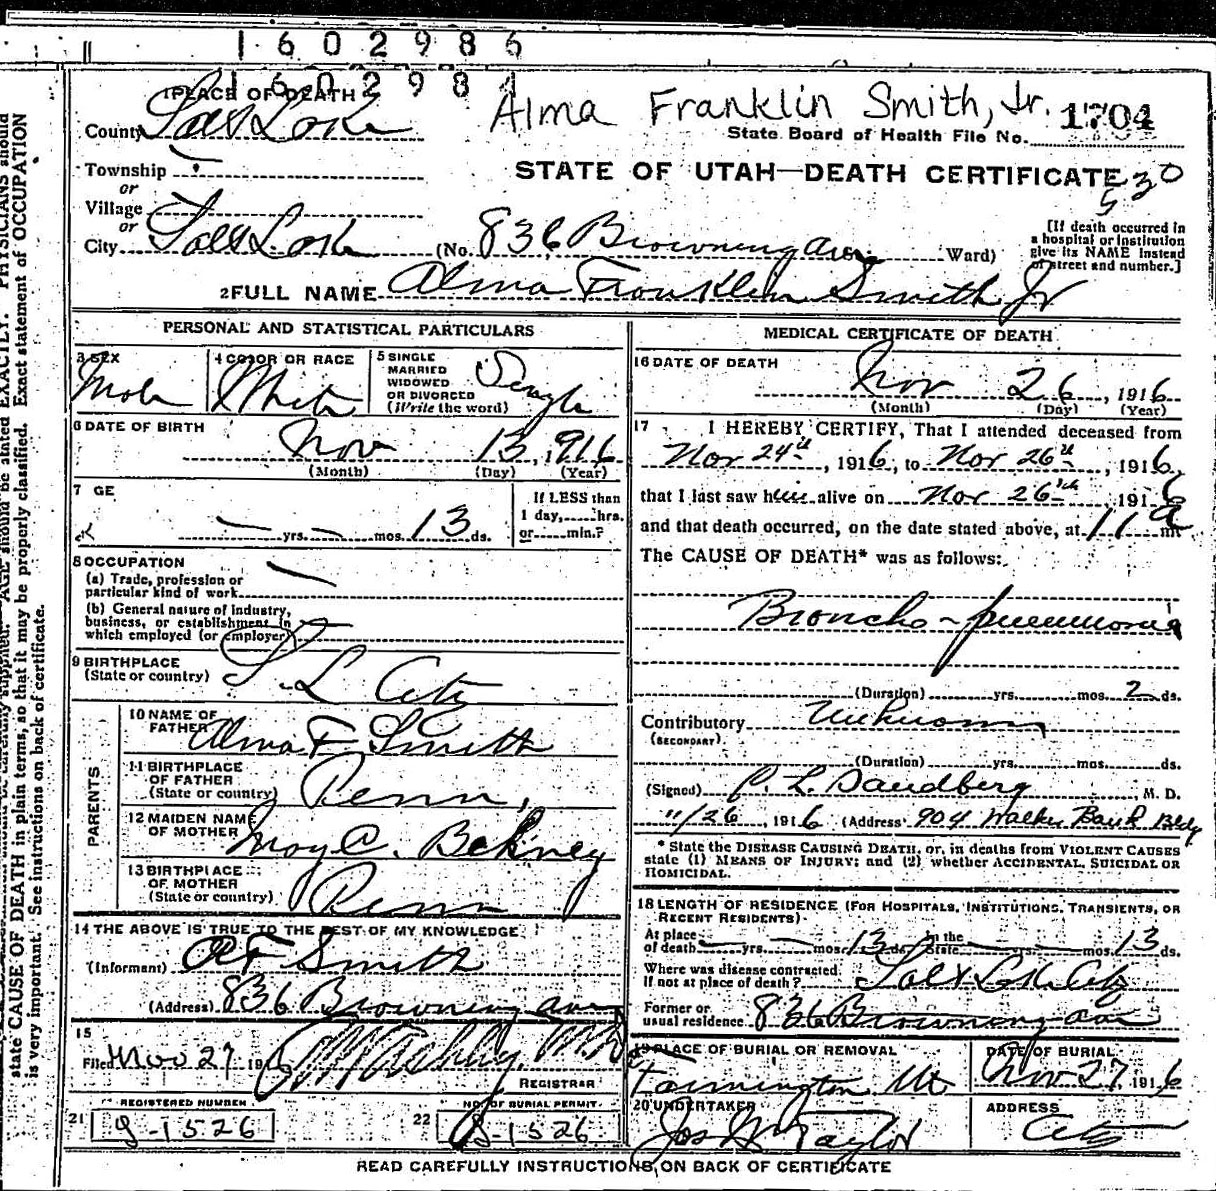 1602986
1602984
1 PLACE OF DEATH
Alma Franklin Smith, Jr.
1704
County Salt Lake
State Board of Health File No.
Township
STATE OF UTAH—DEATH CERTIFICATE
530
or
Village
or
City Salt Lake (No. 836 Browning Ave Ward)
[If death occurred in a hospital or institution give its NAME instead of street and number.]
2 FULL NAME Alma Franklin Smith Jr
PERSONAL AND STATISTICAL PARTICULARS
3 SEX Male
4 COLOR OR RACE White
5 SINGLE MARRIED WIDOWED OR DIVORCED (Write the word) Single
6 DATE OF BIRTH Nov 13, 1916
(Month) (Day) (Year)
7 GE
— yrs. — mos. 13 ds.
If LESS than 1 day, hrs. or min.?
8 OCCUPATION
(a) Trade, profession or particular kind of work
(b) General nature of industry, business, or establishment in which employed (or employer)
9 BIRTHPLACE (State or country) S. L. City
PARENTS
10 NAME OF FATHER Alma F. Smith
11 BIRTHPLACE OF FATHER (State or country) Penn,
12 MAIDEN NAME OF MOTHER May C.
13 BIRTHPLACE OF MOTHER (State or country) Penn
14 THE ABOVE IS TRUE TO THE BEST OF MY KNOWLEDGE
(Informant) A F Smith
(Address) 836 Browning ave
15
Filed Nov 27 1916 M.D.
REGISTRAR
REGISTERED NUMBER
21 g-1526
NO. OF BURIAL PERMIT.
22 g-1526
MEDICAL CERTIFICATE OF DEATH
16 DATE OF DEATH Nov 26, 1916
(Month) (Day) (Year)
17 I HEREBY CERTIFY, That I attended deceased from
Nov 24th, 1916, to Nov 26th, 1916,
that I last saw him alive on Nov 26th, 1916
and that death occurred, on the date stated above, at 11 a m
The CAUSE OF DEATH* was as follows:
Broncho-pneumonia
(Duration) yrs. mos. 2 ds.
Contributory Unknown
(SECONDARY)
(Duration) yrs. mos. ds.
(Signed) P. L. Sandberg, M. D.
11/26, 1916 (Address 904 Walker Bank Bldg
* State the DISEASE CAUSING DEATH, or, in deaths from VIOLENT CAUSES
state (1) MEANS OF INJURY; and (2) whether ACCIDENTAL, SUICIDAL OR
HOMICIDAL.
18 LENGTH OF RESIDENCE (FOR HOSPITALS, INSTITUTIONS, TRANSIENTS, OR
RECENT RESIDENTS)
At place of death — yrs. — mos. 13 ds. In the State — yrs. — mos. 13 ds.
Where was disease contracted, If not at place of death? Salt Lake City
Former or usual residence 836 Browning ave
19 PLACE OF BURIAL OR REMOVAL
Farmington, Ut
DATE OF BURIAL
Nov 27, 1916
20 UNDERTAKER
Jos Wm Taylor
ADDRESS
City
READ CAREFULLY INSTRUCTIONS ON BACK OF CERTIFICATE
state CAUSE OF DEATH in plain terms, so that it may be properly classified. Exact statement of OCCUPATION
is very important. See instructions on back of certificate.